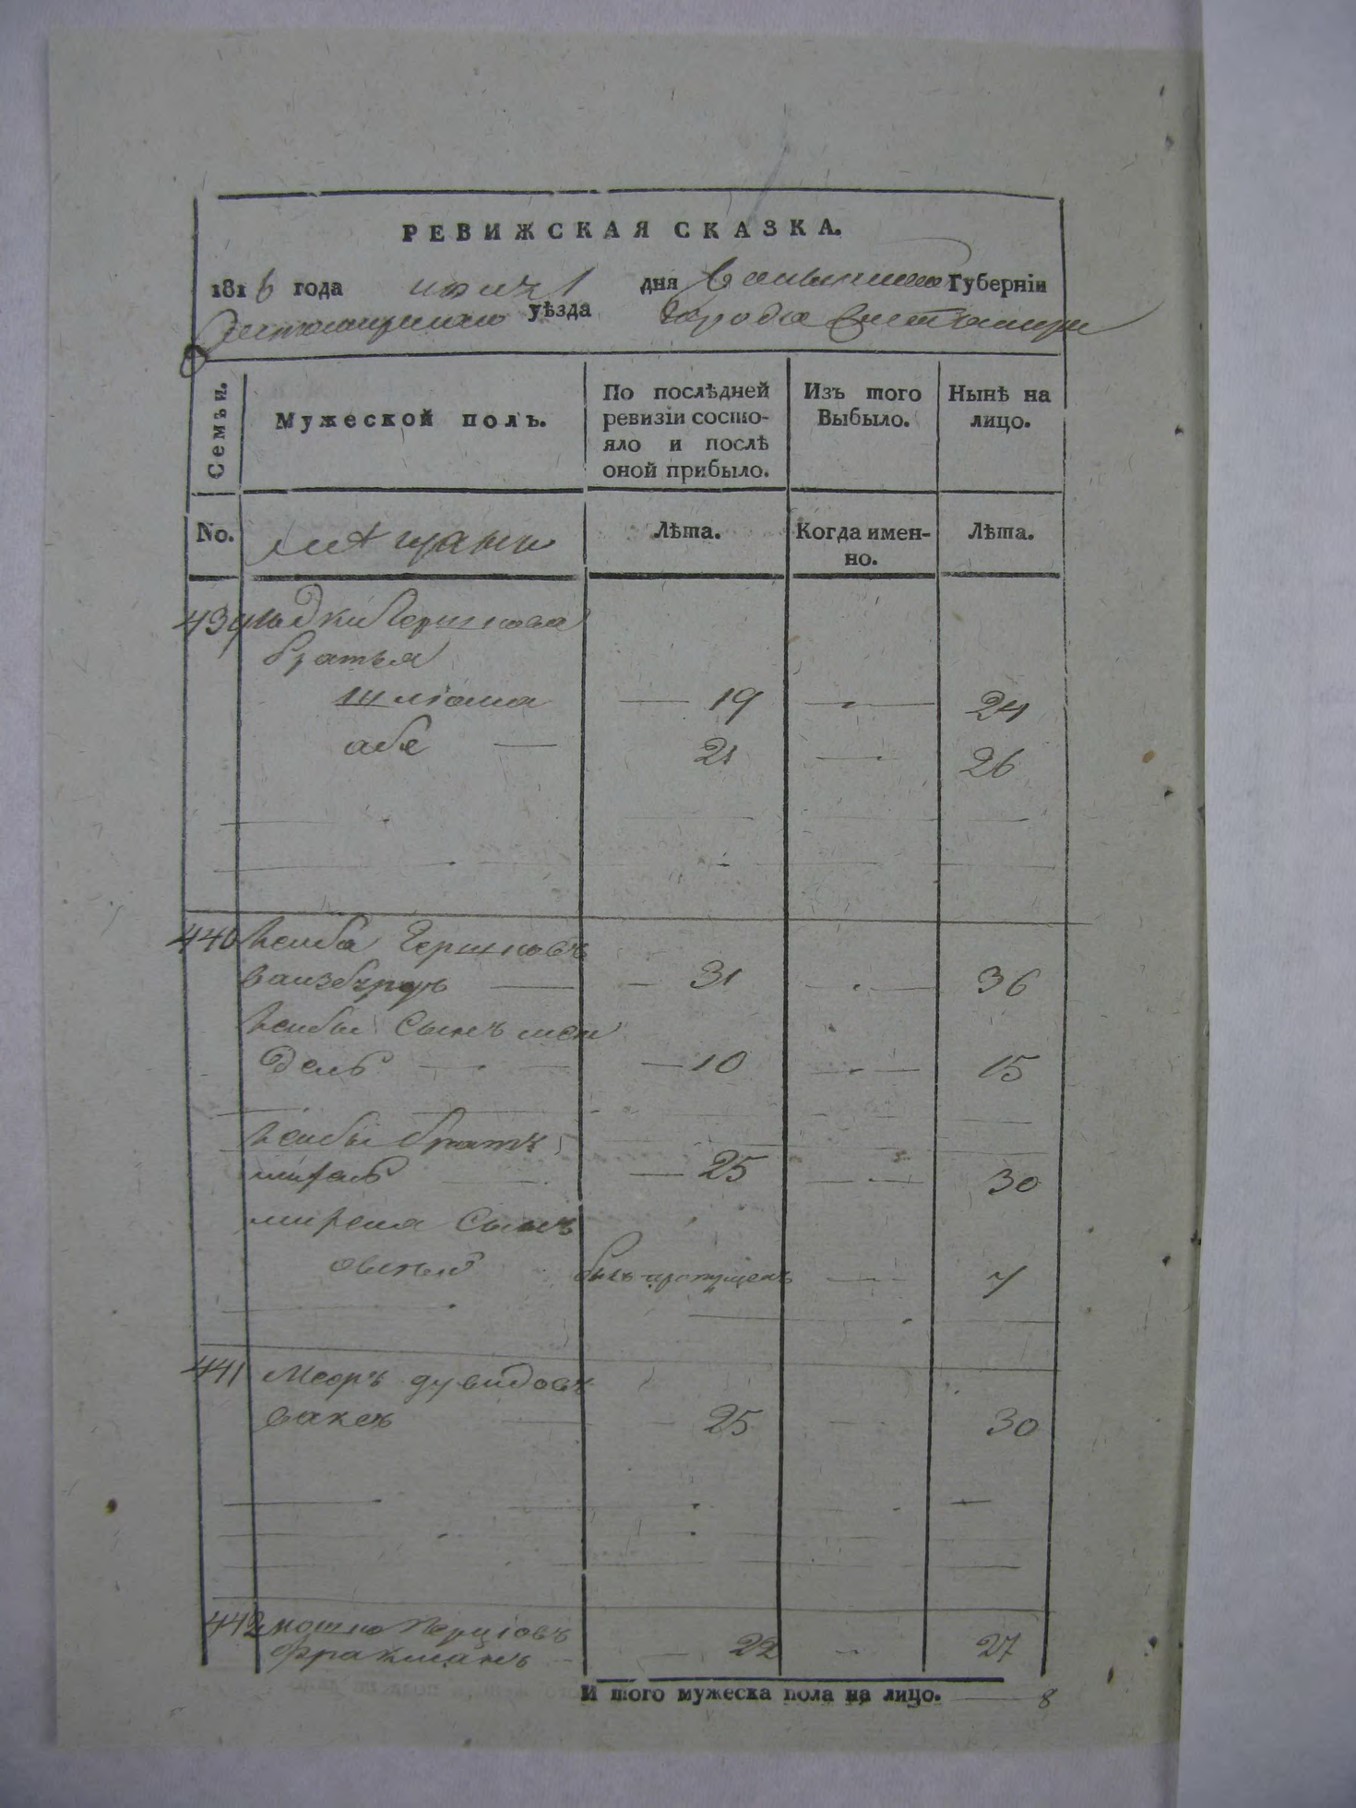 РЕВИЖСКАЯ СКАЗКА.
1816 года июля 1 дня Волынской Губернїи
Житомирскаго уѣзда Города Житомира
Семьи.
Мужеской полъ.
По послѣдней ревизїи состояло и послѣ оной прибыло.
Изъ того Выбыло.
Нынѣ на лицо.
No.
мѣщане
Лѣта.
Когда именно.
Лѣта.
439 Гершкова
братья
шлїома — 19 — 24
абе — 21 — 26
440 Лейба Гершковъ
Вайзбурдъ — 31 — 36
Лейбы Сынъ мен
дель — 10 — 15
Лейбы братъ
— 25 — 30
Сынъ
былъ пропущенъ — 7
441 Меоръ дувидовъ
ваксъ — 25 — 30
442 мошко
Фракманъ — 22 — 27
И того мужеска пола на лицо. — 8